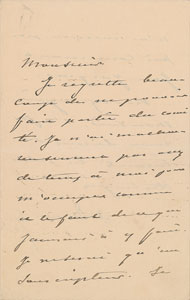 Monsieur
Je regrette beau
coup de ne pouvoir
faire partie du comi
té. Je n'ai malheu
reusement pas assez
de temps à moi pour
m'occuper comme
il le faut de ce que
j'aurais à y faire
Je ne serai qu'un
souscripteur. Je